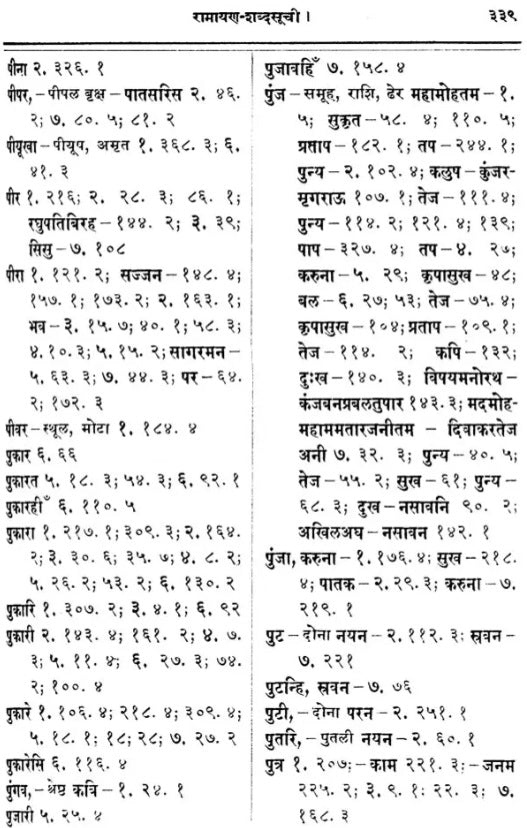 रामायण-शब्दसूची ।
३३९
पीना २. ३२६. १
पीपर,-पीपल वृक्ष-पातसरिस २. ४६.
२; ७. ८०. ५; ८१. २
पीयूखा-पीयूष, अमृत १. ३६८. ३; ६.
४१. ३
पीर १. २१६; २. २८. ३; ८६. १;
रघुपतिबिरह-१४४. २; ३. ३९;
सिसु-७. १०८
पीरा १. १२१. २; सज्जन-१४८. ४;
१५७. १; १७३. २; २. १६३. १;
भव-३. १५. ७; ४०. १; ५८. ३;
४. १०. ३; ५. १५. २; सागरमन-
५. ६३. ३; ७. ४४. ३; पर-६४.
२; १७२. ३
पीवर-स्थूल, मोटा १. १८४. ४
पुकार ६. ६६
पुकारत ५. १८. ३; ५४. ३; ६. ९२. १
पुकारहीँ ६. ११०. ५
पुकारा १. २१७. १; ३०९. ३; २. १६४.
२; ३. ३०. ६; ३५. ७; ४. ८. २;
५. २६. २; ५३. २; ६. १३०. २
पुकारि १. ३०७. २; ३. ४. १; ६. ९२
पुकारी २. १४३. ४; १६१. २; ४. ७.
३; ५. ११. ४; ६. २७. ३; ७४.
२; १००. ४
पुकारे १. १०६. ४; २१८. ४; ३०९. ४;
५. १८. १; १८; २८; ७. २७. २
पुकारेसि ६. ११६. ४
पुंगव,-श्रेष्ठ कवि-१. २४. १
पुजारी ५. २५. ४
पुजावहिँ ७. १५८. ४
पुंज-समूह, राशि, ढेर महामोहतम-१.
५; सुकृत-५८. ४; ११०. ५;
प्रताप-१८२. १; तप-२४४. १;
पुन्य-२. १०२. ४; कलुष-कुंजर-
मृगराऊ १०७. १; तेज-१११. ४;
पुन्य-११४. २; १२१. ४; १३९;
पाप-३२७. ४; तप-४. २७;
करुना-५. २९; कृपासुख-४८;
बल-६. २७; ५३; तेज-७५. ४;
कृपासुख-१०४; प्रताप-१०९. १;
तेज-११४. २; कपि-१३२;
दुःख-१४०. ३; विषयमनोरथ-
कंजबनप्रबलतुषार १४३. ३; मदमोह-
महाममतारजनीतम-दिवाकरतेज
अनी ७. ३२. ३; पुन्य-४०. ५;
तेज-५५. २; सुख-६१; पुन्य-
६८. ३; दुख-नसावनि ९०. २;
अखिलअघ-नसावन १४२. १
पुंजा, करुना-१. १७६. ४; सुख-२१८.
४; पातक-२. २९. ३; करुना-७.
२१९. १
पुट-दोना नयन-२. ११२. ३; स्रवन-
७. २२१
पुटन्हि, स्रवन-७. ७६
पुटी,-दोना परन-२. २५१. १
पुतरि,-पुतली नयन-२. ६०. १
पुत्र १. २०७;-काम २२१. ३;-जनम
२२५. २; ३. ९. १; २२. ३; ७.
१६८. ३